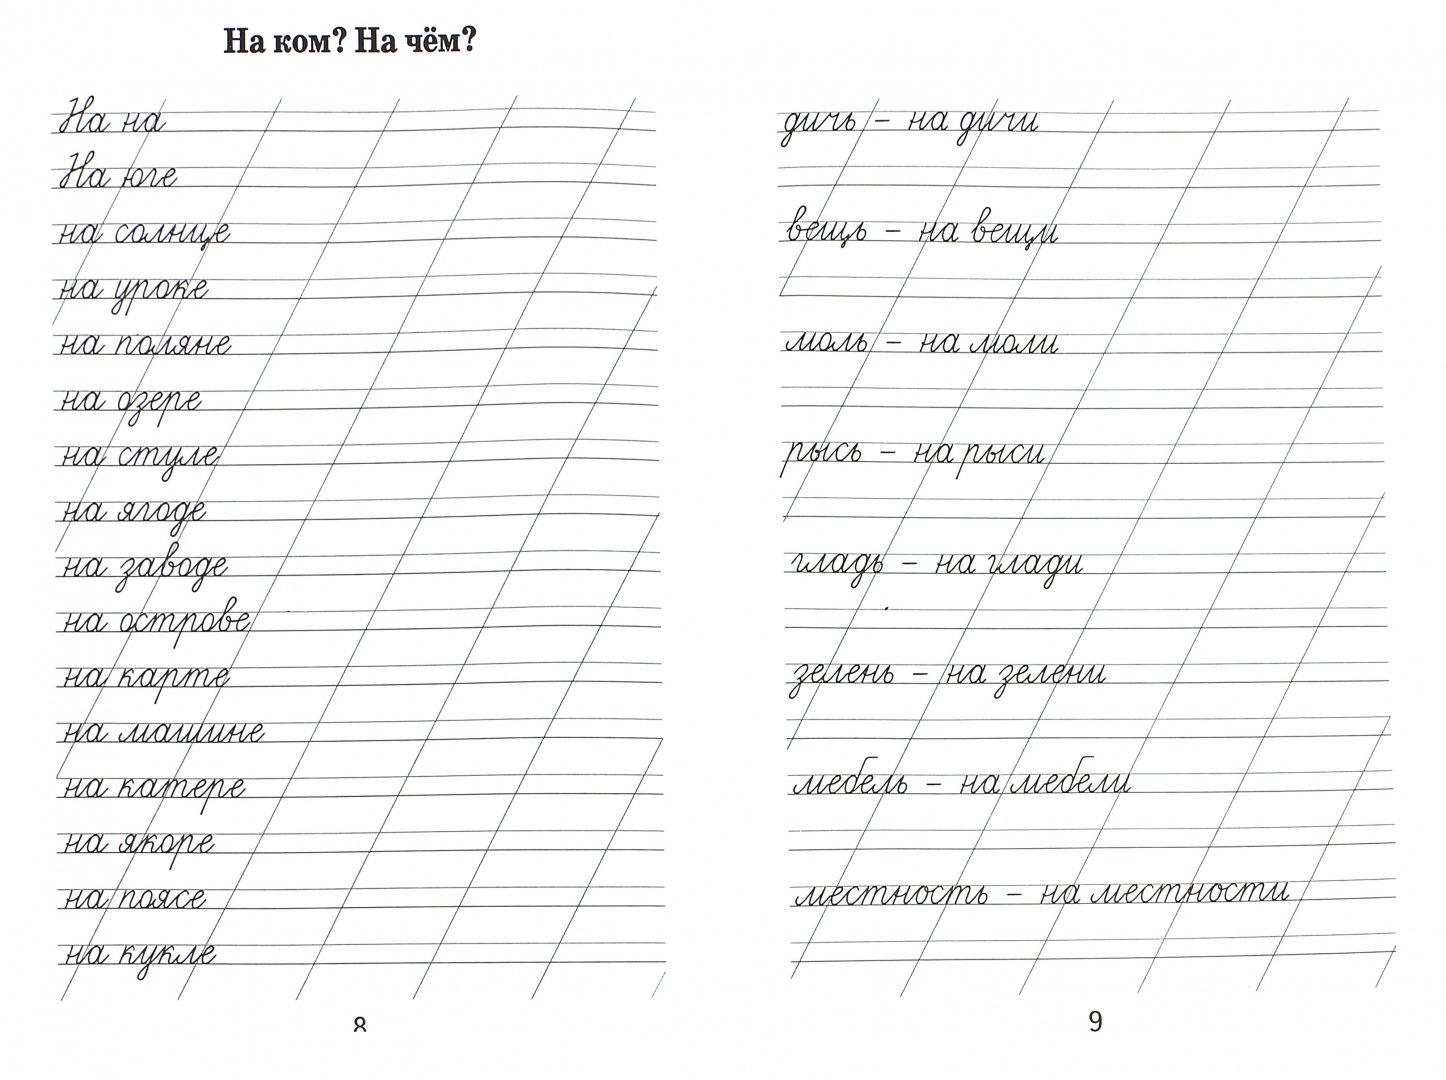 На ком? На чём?
На на
На юге
на солнце
на уроке
на поляне
на озере
на стуле
на ягоде
на заводе
на острове
на карте
на машине
на катере
на якоре
на поясе
на кукле
8
дичь – на дичи
вещь – на вещи
моль – на моли
рысь – на рыси
гладь – на глади
зелень – на зелени
мебель – на мебели
местность – на местности
9